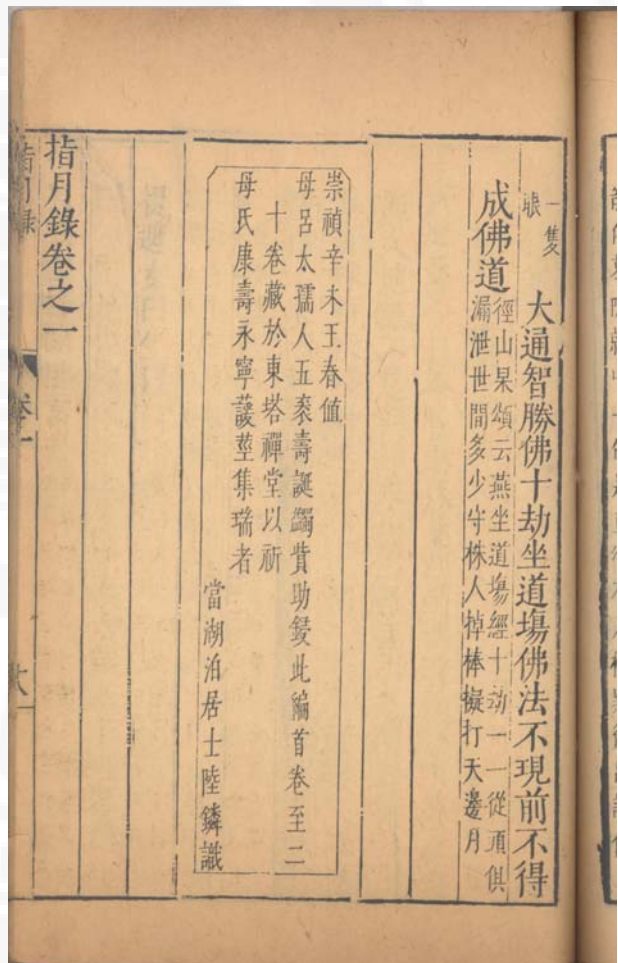 一隻
眼
大通智勝佛十劫坐道塲佛法不現前不得
成佛道
徑山杲頌云燕坐道塲經十劫一一從頭俱
漏泄世間多少守株人掉棒擬打天邊月
崇禎辛未王春值
母呂太孺人五袠壽誕蠲貲助鋟此編首卷至二
十卷藏於東塔禪堂以祈
母氏康壽永寧萲莖集瑞者
當湖泊居士陸鏻識
指月錄卷之一
指月錄
卷一